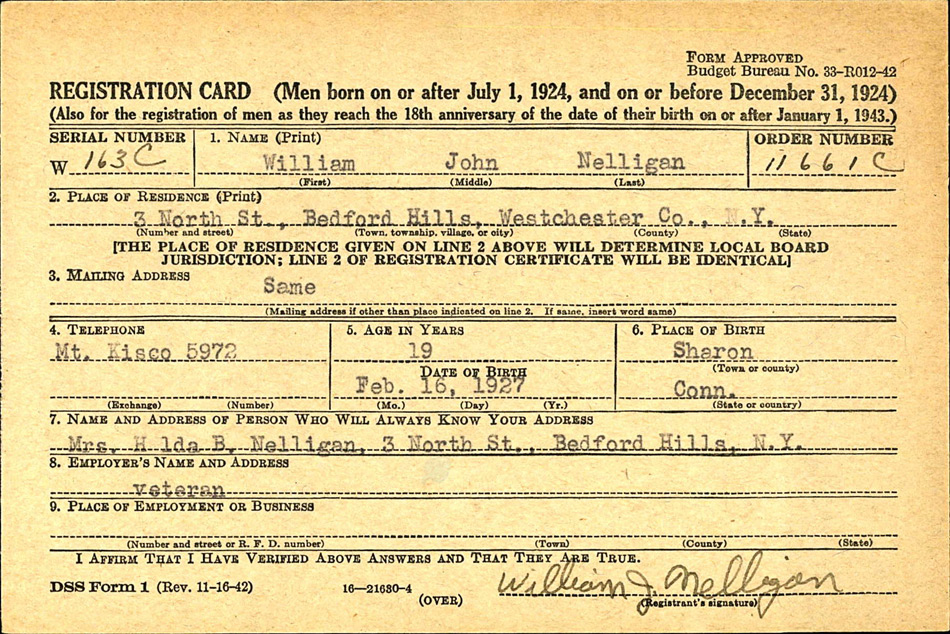 FORM APPROVED
Budget Bureau No. 33-R012-42
REGISTRATION CARD (Men born on or after July 1, 1924, and on or before December 31, 1924)
(Also for the registration of men as they reach the 18th anniversary of the date of their birth on or after January 1, 1943.)
SERIAL NUMBER 1. NAME (Print) ORDER NUMBER
W 163 C William John Nelligan 11661C
(First) (Middle) (Last)
2. PLACE OF RESIDENCE (Print)
3 North St., Bedford Hills, Westchester Co., N.Y.
(Number and street) (Town, township, village, or city) (County) (State)
[THE PLACE OF RESIDENCE GIVEN ON LINE 2 ABOVE WILL DETERMINE LOCAL BOARD
JURISDICTION; LINE 2 OF REGISTRATION CERTIFICATE WILL BE IDENTICAL]
3. MAILING ADDRESS
Same
(Mailing address if other than place indicated on line 2. If same, insert word same)
4. TELEPHONE 5. AGE IN YEARS 6. PLACE OF BIRTH
Mt. Kisco 5972 19 Sharon
(Town or county)
DATE OF BIRTH
Feb. 16, 1927 Conn.
(Exchange) (Number) (Mo.) (Day) (Yr.) (State or country)
7. NAME AND ADDRESS OF PERSON WHO WILL ALWAYS KNOW YOUR ADDRESS
Mrs. H lda B. Nelligan, 3 North St., Bedford Hills, N.Y.
8. EMPLOYER'S NAME AND ADDRESS
Veteran
9. PLACE OF EMPLOYMENT OR BUSINESS
(Number and street or R. F. D. number) (Town) (County) (State)
I AFFIRM THAT I HAVE VERIFIED ABOVE ANSWERS AND THAT THEY ARE TRUE.
DSS Form 1 (Rev. 11-16-42) 16—21630-4 William J Nelligan
(OVER) (Registrant's signature)